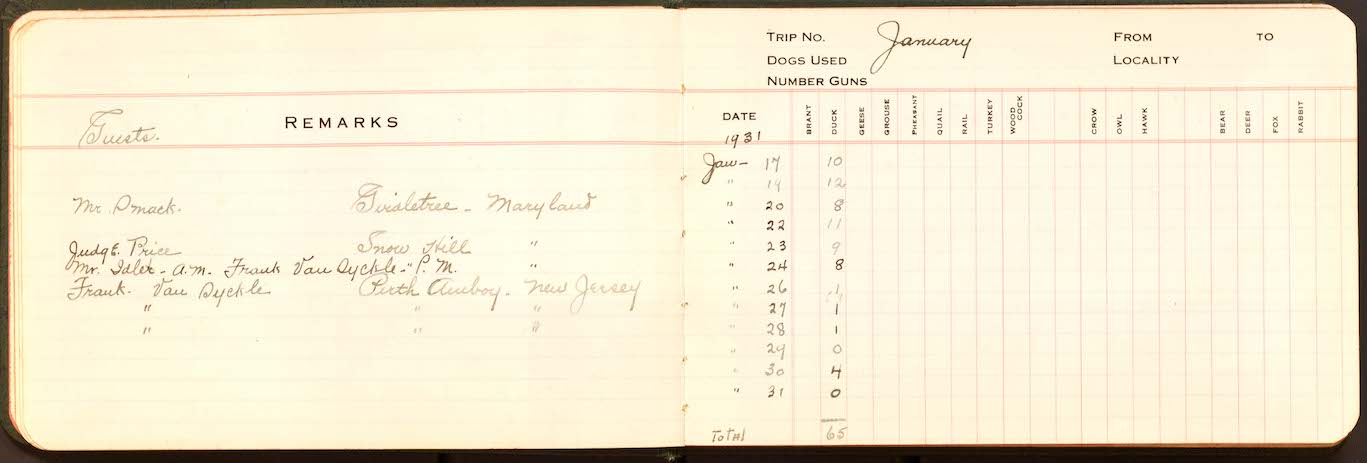 Guests.
REMARKS
Mr. Pmack. Girdletree - Maryland
Judge Price Snow Hill "
Mr. Idler - A.M. Frank Van Dyckle - " P.M. "
Frank Van Dyckle Perth Amboy - New Jersey
" " "
" " "
TRIP NO. January FROM TO
DOGS USED LOCALITY
NUMBER GUNS
DATE BRANT DUCK GEESE GROUSE PHEASANT QUAIL RAIL TURKEY WOOD COCK CROW OWL HAWK BEAR DEER FOX RABBIT
1931
Jan - 17 10
" 19 12
" 20 8
" 22 11
" 23 9
" 24 8
" 26 1
" 27 1
" 28 1
" 29 0
" 30 4
" 31 0
Total 65